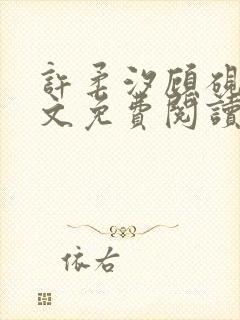 許柔汐顧硯
文免費閱讀
依右